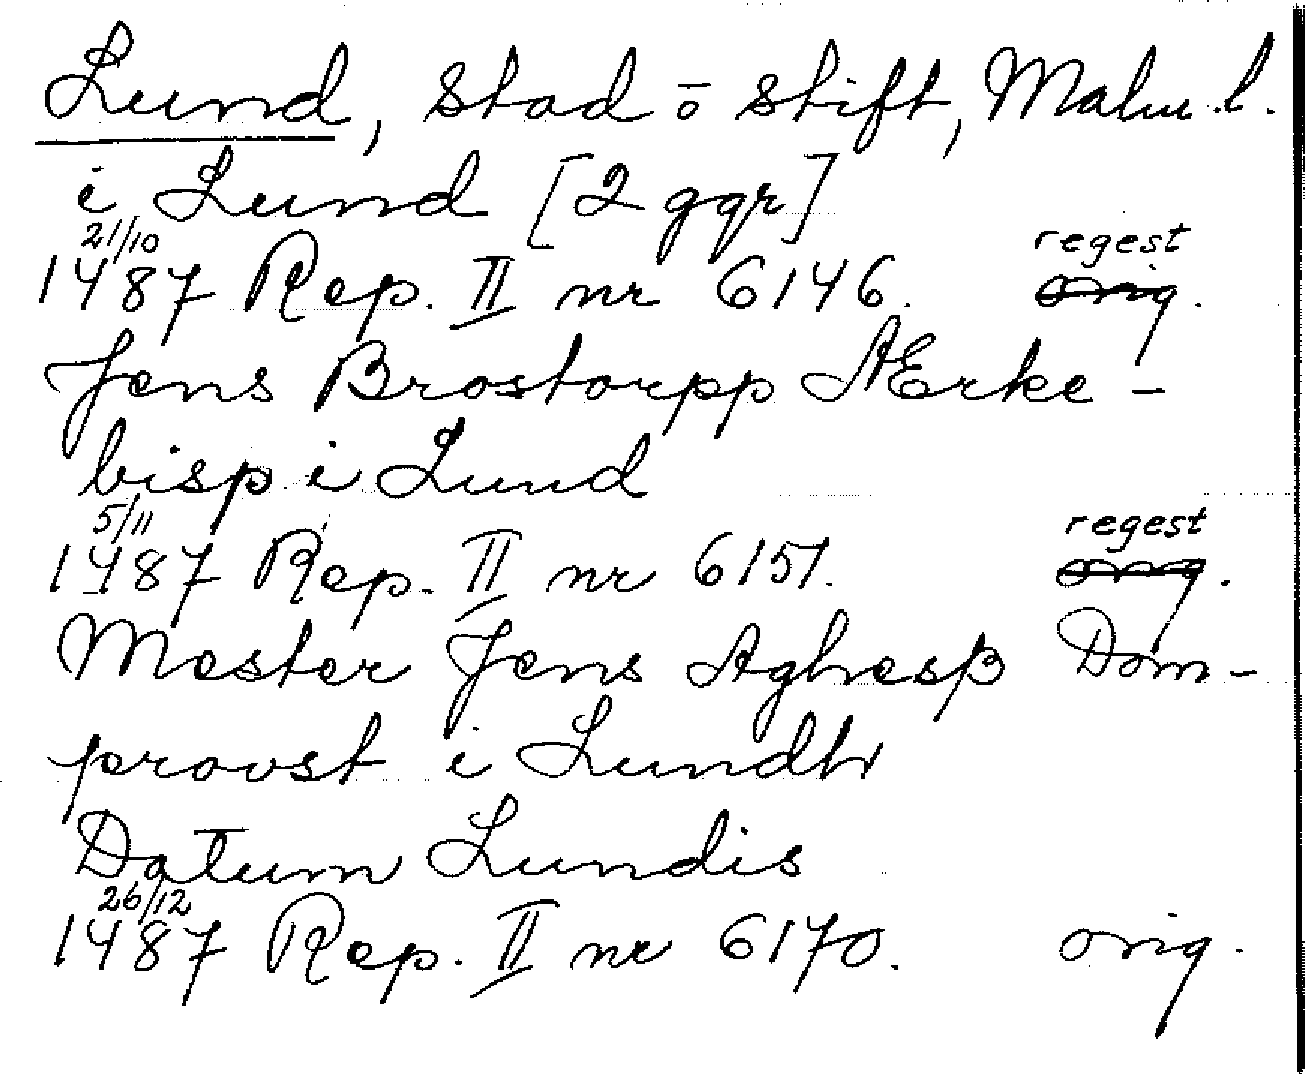 Lund, stad o stift, Malm. l.
i Lund [2 ggr]
21/10 regest
1487 Rep. II nr 6146. orig.
Jens Brostorpp Ærke-
bisp i Lund
5/11 regest
1487 Rep. II nr 6151. orig.
Mester Jens Aghesß Dom-
provst i Lundh
Datum Lundis
26/12
1487 Rep. II nr 6170. orig.